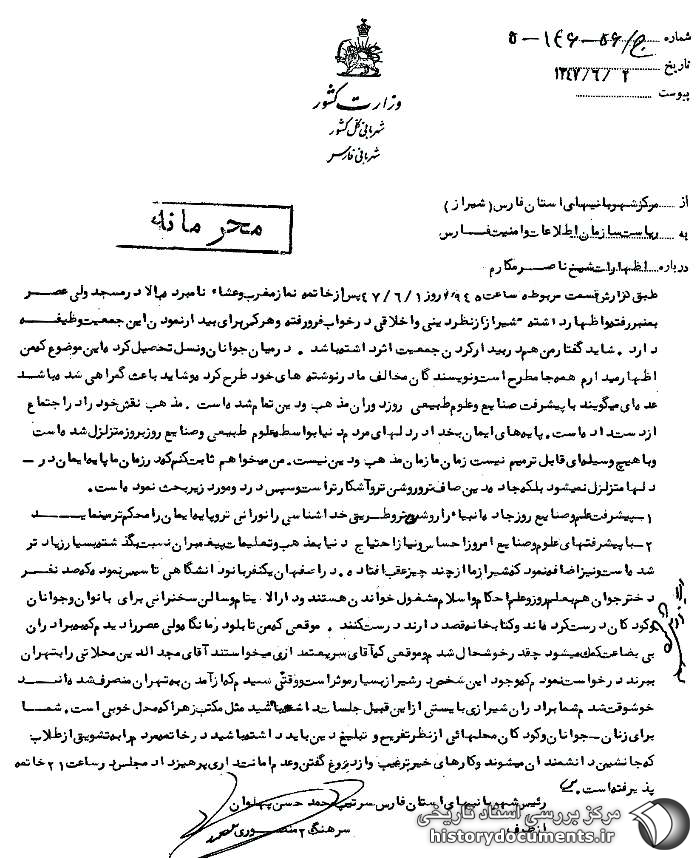 شماره ۵-۱۴۶-۵۶/ج
تاریخ ۱۳۴۷/۶/۲
پیوست
وزارت کشور
شهربانی کل کشور
شهربانی فارس
از مرکز شهربانیهای استان فارس (شیراز)
به ریاست سازمان اطلاعات و امنیت فارس
درباره اظهارات شیخ ناصر مکارم
محرمانه
طبق گزارش قسمت مربوطه ساعت روز ۴۷/۶/۱ پس از خاتمه نماز مغرب و عشاء نامبرده بالا در مسجد ولی عصر
بمنبر رفته و اظهار داشته شیراز از نظر دینی و اخلاقی در خواب فرو رفته و هر کس برای بیدار نمودن این جمعیت وظیفه
دارد . شاید گفتار من هم در بیدار کردن جمعیت اثر داشته باشد . در میان جوانان و نسل تحصیل کرده این موضوع که من
اظهار میدارم همه جا مطرح است و نویسندگان مخالف ما در نوشته های خود طرح کرده و شاید باعث گمراهی شده باشد
عده ای میگویند با پیشرفت صنایع و علوم طبیعی روز دوران مذهب و دین تمام شده است . مذهب نقش خود را در اجتماع
از دست داده است . پایه های ایمان بخدا در دلهای مردم دنیا بواسطه علوم طبیعی و صنایع روز بروز متزلزل شده است
و با هیچ وسیله ای قابل ترمیم نیست زمان ما زمان مذهب و دین نیست . من میخواهم ثابت کنم که در زمان ما پایه ایمان در -
دلها متزلزل نمیشود بلکه جاده دین صاف تر و روشن تر و آشکارتر است و سپس در دو مورد زیر بحث نموده است .
۱- پیشرفت علم و صنایع روز جاده انبیاء را روشن تر و طریق خداشناسی را نورانی تر و پایه ایمان را محکم تر مینماید
۲- با پیشرفتهای علوم و صنایع امروز احساس و نیاز احتیاج دنیا بمذهب و تعلیمات پیغمبران نسبت بگذشته بسیار زیاد تر
شده است و نیز اضافه نمود که شیراز ما از چند چیز عقب افتاده . در اصفهان یکنفر بانو دانشگاهی تاسیس نموده که صد نفر
دختر جوان هم بعلم روز و علم احکام و اسلام مشغول خواندن هستند و دارالایتام و سالن سخنرانی برای بانوان و جوانان
و کودکان درست کرده اند و کتابخانه قصد دارند درست کنند . موقعی که من تابلو درمانگاه ولی عصر را دیدم که به برادران
بی بضاعت کمک میشود چقدر خوشحال شدم و موقعی که آقای میخواستند آقای مجدالدین محلاتی را بتهران
ببرند درخواست نمودم که وجود این شخص در شیراز بسیار موثر است و وقتی شنیدم که از آمدن به تهران منصرف شده اند
خوشوقت شدم شما برادران شیرازی بایستی از این قبیل جلسات داشته باشید مثل مکتب زهرا که محل خوبی است . شما
برای زنان - جوانان و کودکان محلهائی از نظر تفریح و تبلیغ دین باید داشته باشید در خاتمه مردم را به تشویق از طلاب
که جانشین دانشمندان میشوند و کارهای خیر ترغیب و از دروغ گفتن و عدم امانت داری پرهیز داد مجلس در ساعت ۲۱ خاتمه
پذیرفته است .
رئیس شهربانیهای استان فارس سرتیپ محمد حسن پهلوان
از طرف
سرهنگ ۲ منصوری
مرکز بررسی اسناد تاریخی
historydocuments.ir